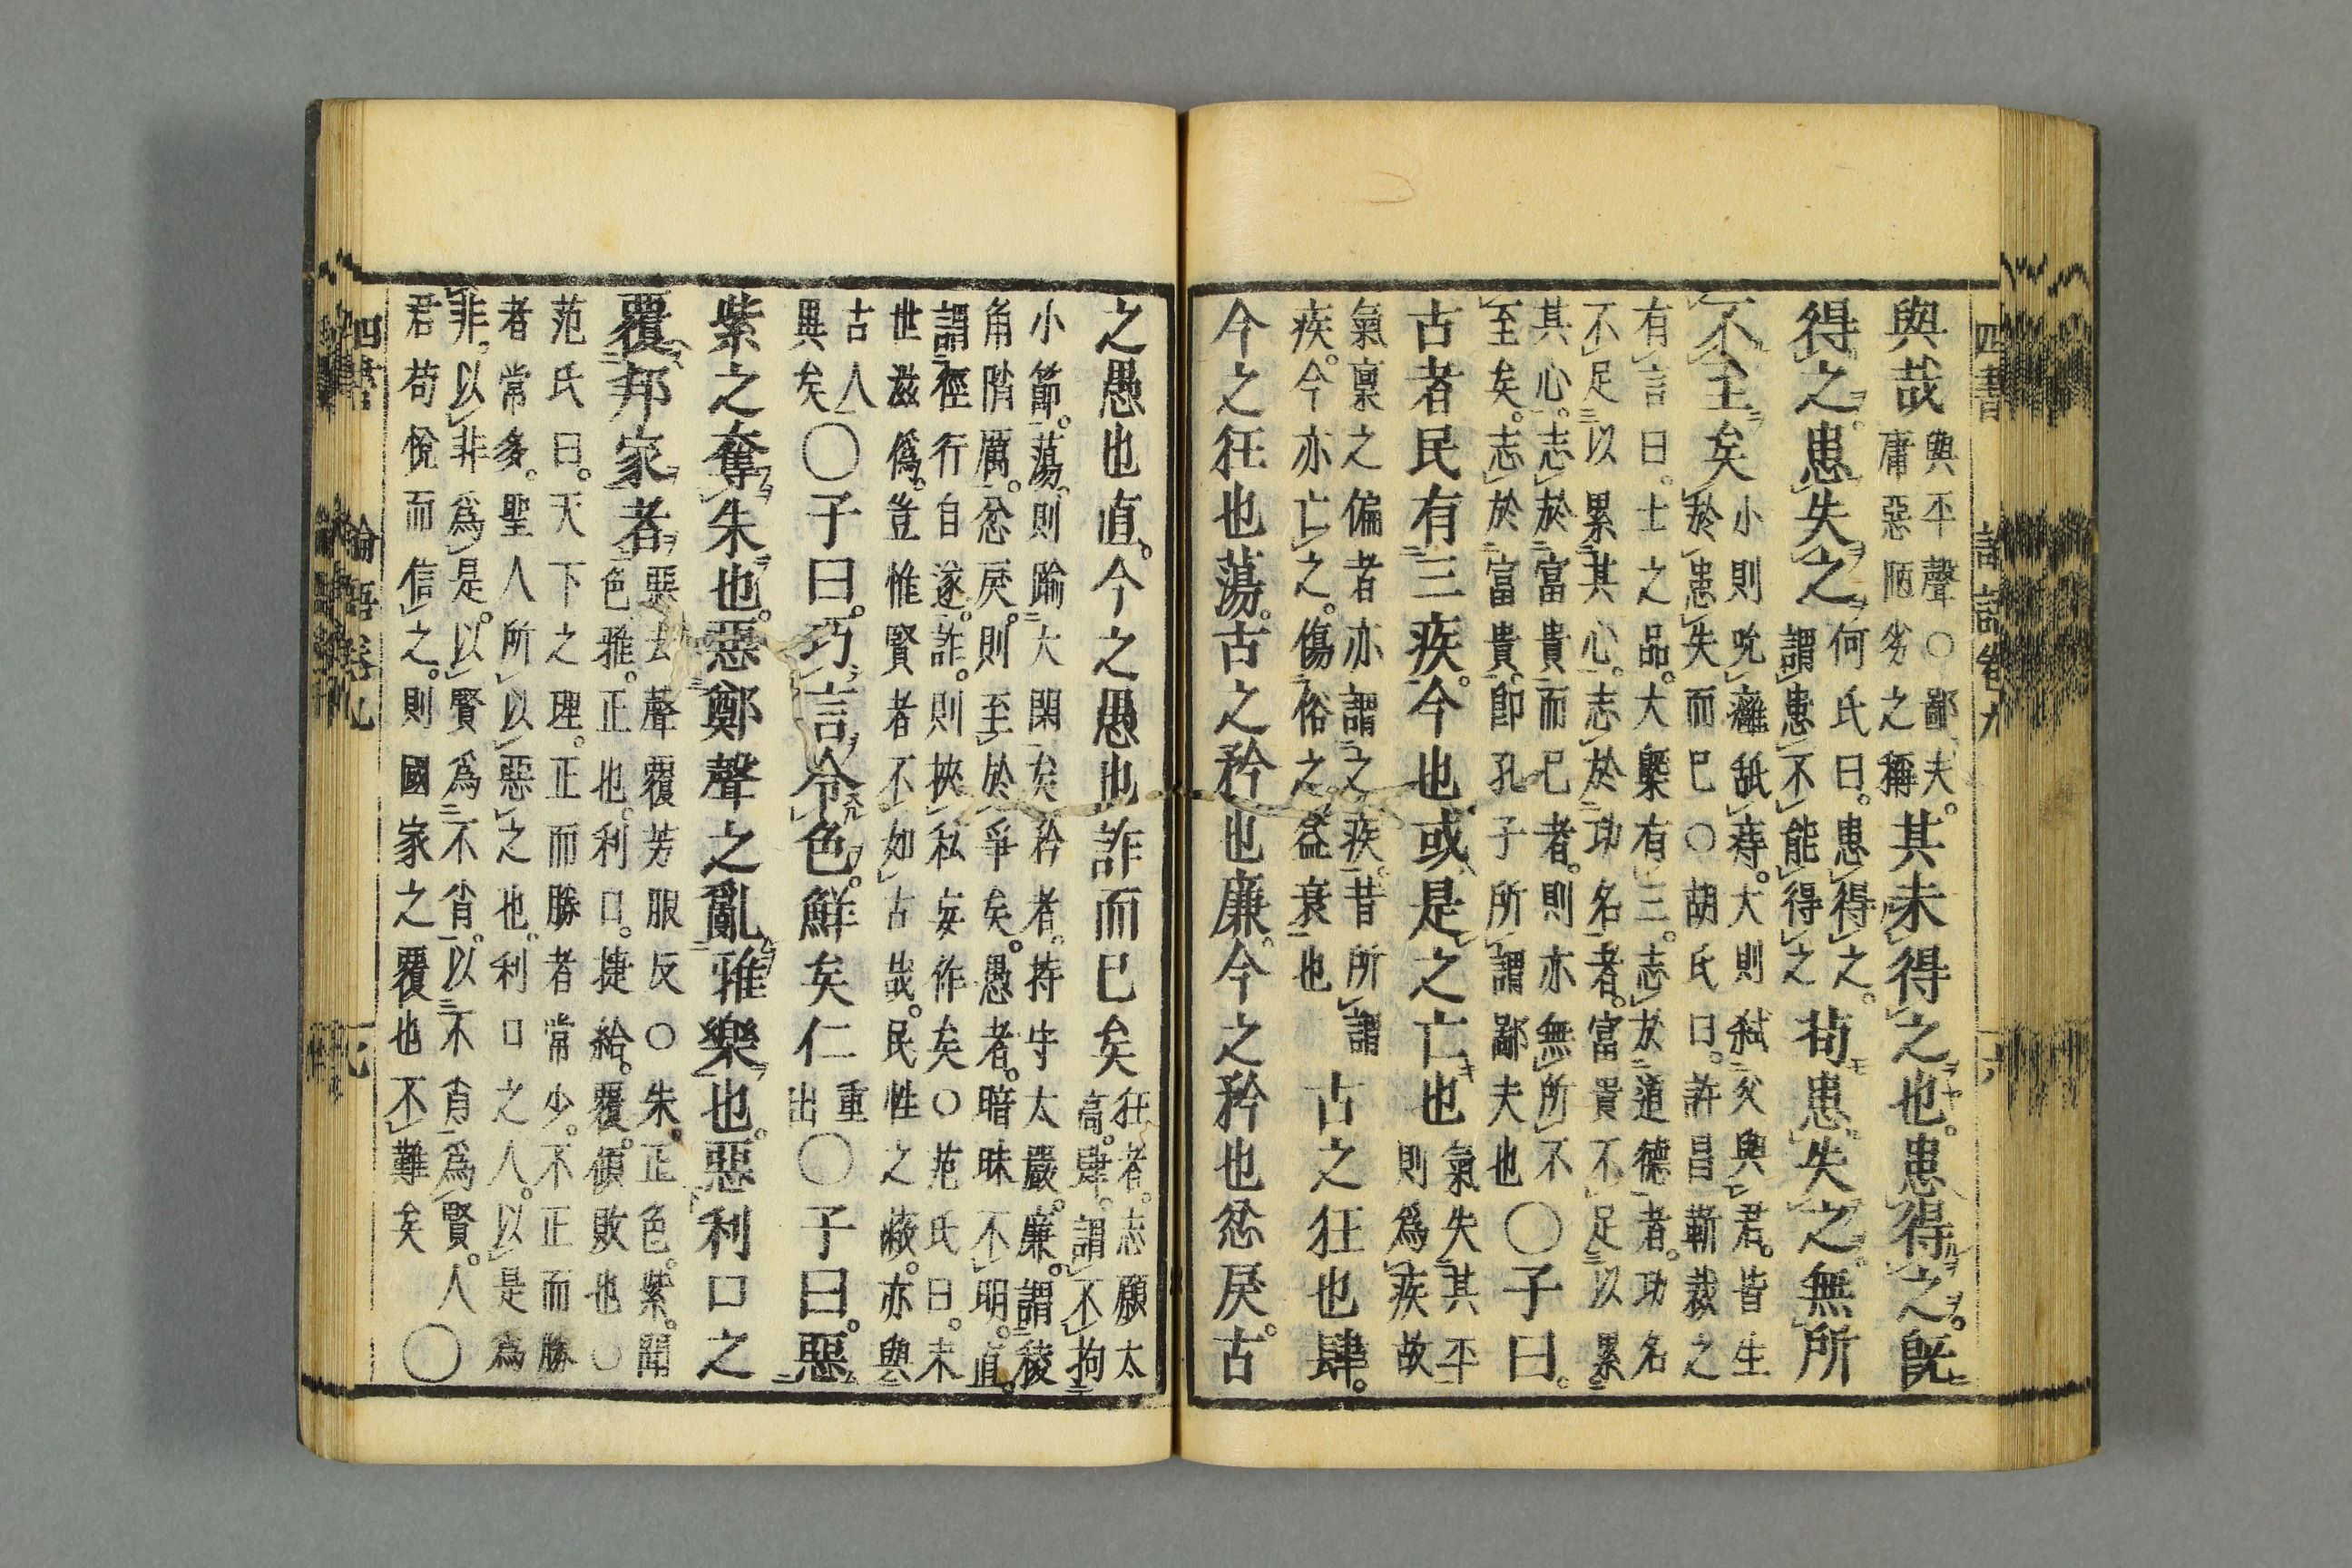 與哉
與平聲○鄙夫。
庸惡陋劣之稱
其未得之也。患得之。既
得之。患失之
何氏曰。患得之。
謂患不能得之
苟患失之。無所
不至矣
小則吮癰舐痔。大則弑父與君。皆生
於患失而已○胡氏曰。許昌靳裁之
有言曰。士之品。大槩有三。志於道德者。功名
不足以累其心。志於功名者。富貴不足以累
其心。志於富貴而已者。則亦無所不
至矣。志於富貴。即孔子所謂鄙夫也
○子曰。
古者民有三疾。今也或是之亡也
氣失其平
則爲疾故
氣稟之偏者亦謂之疾。昔所謂
疾。今亦亡之。傷俗之益衰也
古之狂也肆。
今之狂也蕩。古之矜也廉。今之矜也忿戾。古
四書
論語卷九
十六
之愚也直。今之愚也詐而已矣
狂者。志願太
高。肆。謂不拘
小節。蕩。則踰大閑矣矜者。持守太嚴。廉。謂稜
角陗厲。忿戾。則至於爭矣。愚者。暗昧不明。直。
謂徑行自遂。詐。則挾私妄作矣○范氏曰。末
世滋僞。豈惟賢者不如古哉。民性之蔽。亦與
古人
異矣
○子曰。巧言令色。鮮矣仁
重
出
○子曰。惡
紫之奪朱也。惡鄭聲之亂雅樂也。惡利口之
覆邦家者
惡去聲覆芳服反○朱。正色。紫。間
色。雅。正也。利口。捷給。覆。傾敗也○
范氏曰。天下之理。正而勝者常少。不正而勝
者常多。聖人所以惡之也。利口之人。以是爲
非。以非爲是。以賢爲不肖。以不肖爲賢。人
君苟悅而信之。則國家之覆也不難矣
○
四書
論語卷九